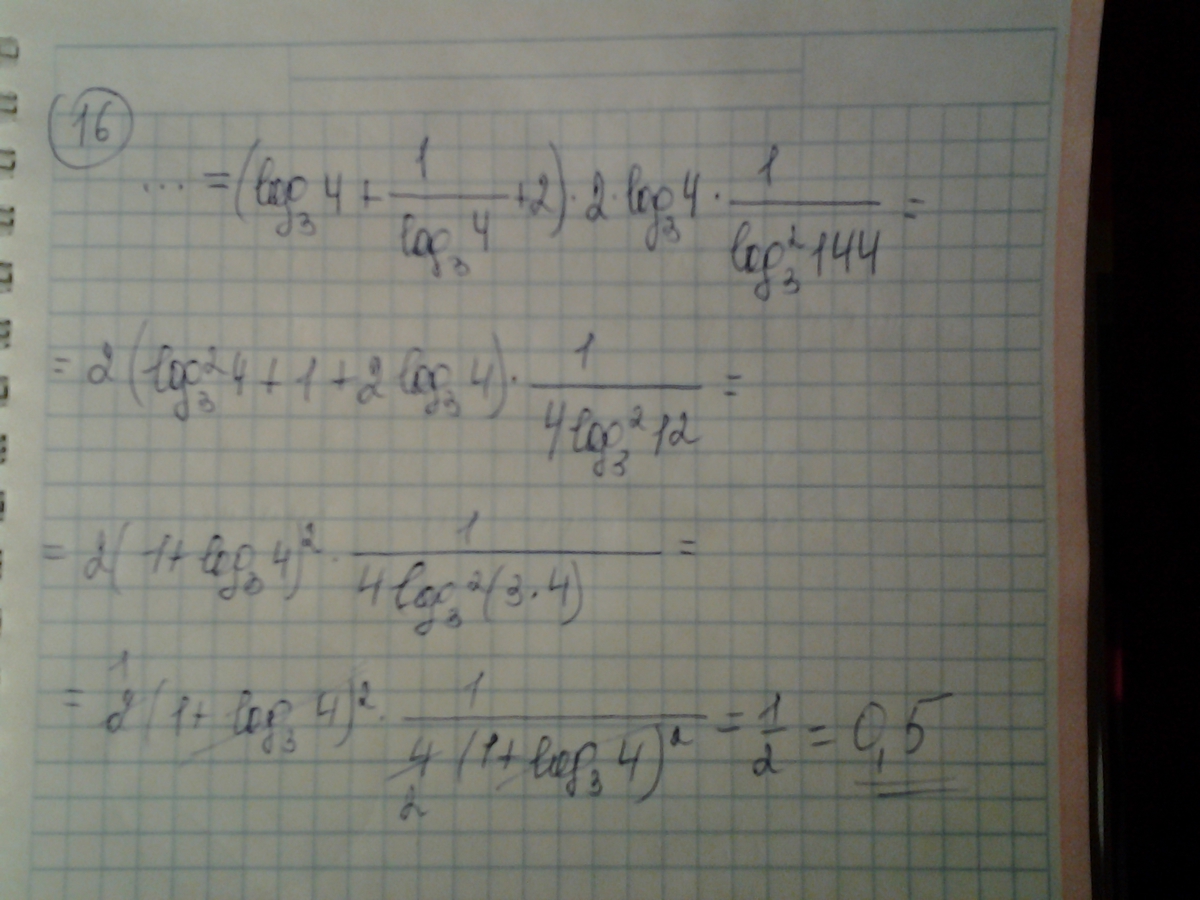 16
... = (log₃ 4 + 1/(log₃ 4) + 2) · 2 · log₃ 4 · 1/(log₃² 144) =
= 2 (log₃² 4 + 1 + 2 log₃ 4) · 1/(4 log₃² 12) =
= 2 (1 + log₃ 4)² · 1/(4 log₃² (3 · 4)) =
1
= 2 (1 + log₃ 4)² · 1/(4 (1 + log₃ 4)²) = 1/2 = 0,5
2